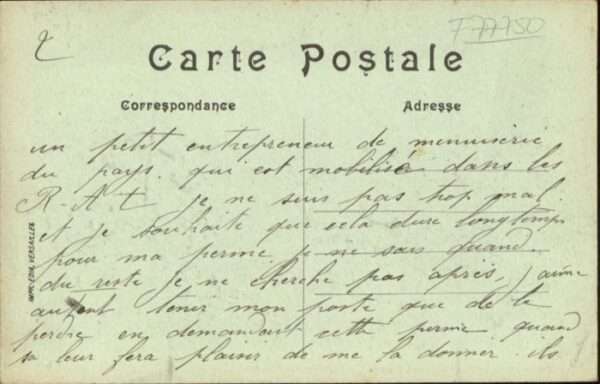 2
T 77750
Carte Postale
Correspondance
Adresse
un petit entrepreneur de menuiserie
du pays. qui est mobilisé dans les
R-A-t je ne suis pas trop mal.
et je souhaite que cela dure longtemps
pour ma perme. je ne sais quand.
du reste je ne cherche pas après, j'aime
autant tenir mon poste que de le
perdre en demandant cette perme quand
sa leur fera plaisir de me la donner. ils
IMPR. EDIA, VERSAILLES